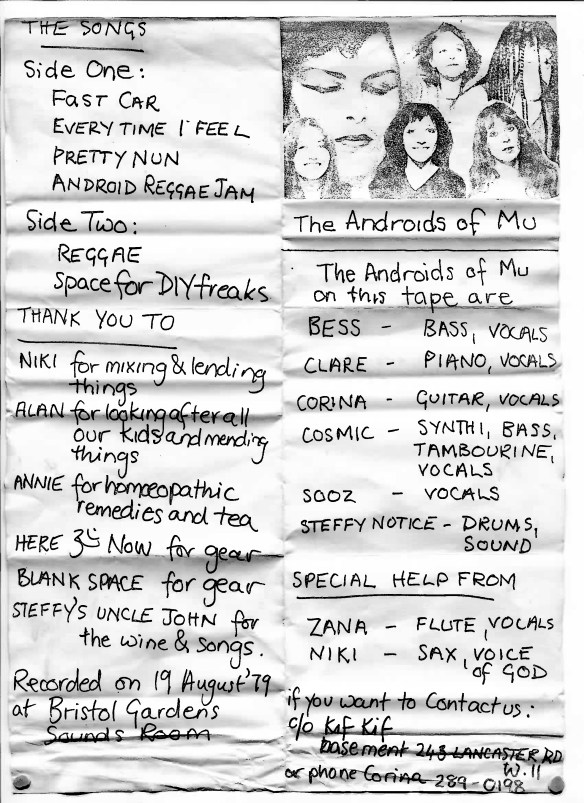 THE SONGS
Side One:
FAST CAR
EVERY TIME I FEEL
PRETTY NUN
ANDROID REGGAE JAM
Side Two:
REGGAE
Space for DIY freaks
THANK YOU TO
NIKI for mixing & lending
things
ALAN for looking after all
our kids and mending
things
ANNIE for homœopathic
remedies and tea
HERE & NOW for gear
BLANK SPACE for gear
STEFFY'S UNCLE JOHN for
the wine & songs.
Recorded on 19 August '79
at Bristol Gardens
Sounds Room
The Androids of Mu
The Androids of Mu
on this tape are
BESS - BASS, VOCALS
CLARE - PIANO, VOCALS
CORINA - GUITAR, VOCALS
COSMIC - SYNTHI, BASS,
TAMBOURINE,
VOCALS
SOOZ - VOCALS
STEFFY NOTICE - DRUMS,
SOUND
SPECIAL HELP FROM
ZANA - FLUTE, VOCALS
NIKI - SAX, VOICE
of GOD
if you want to contact us:
c/o Kif Kif
basement 243 LANCASTER RD
W.11
or phone Corina 289-0198